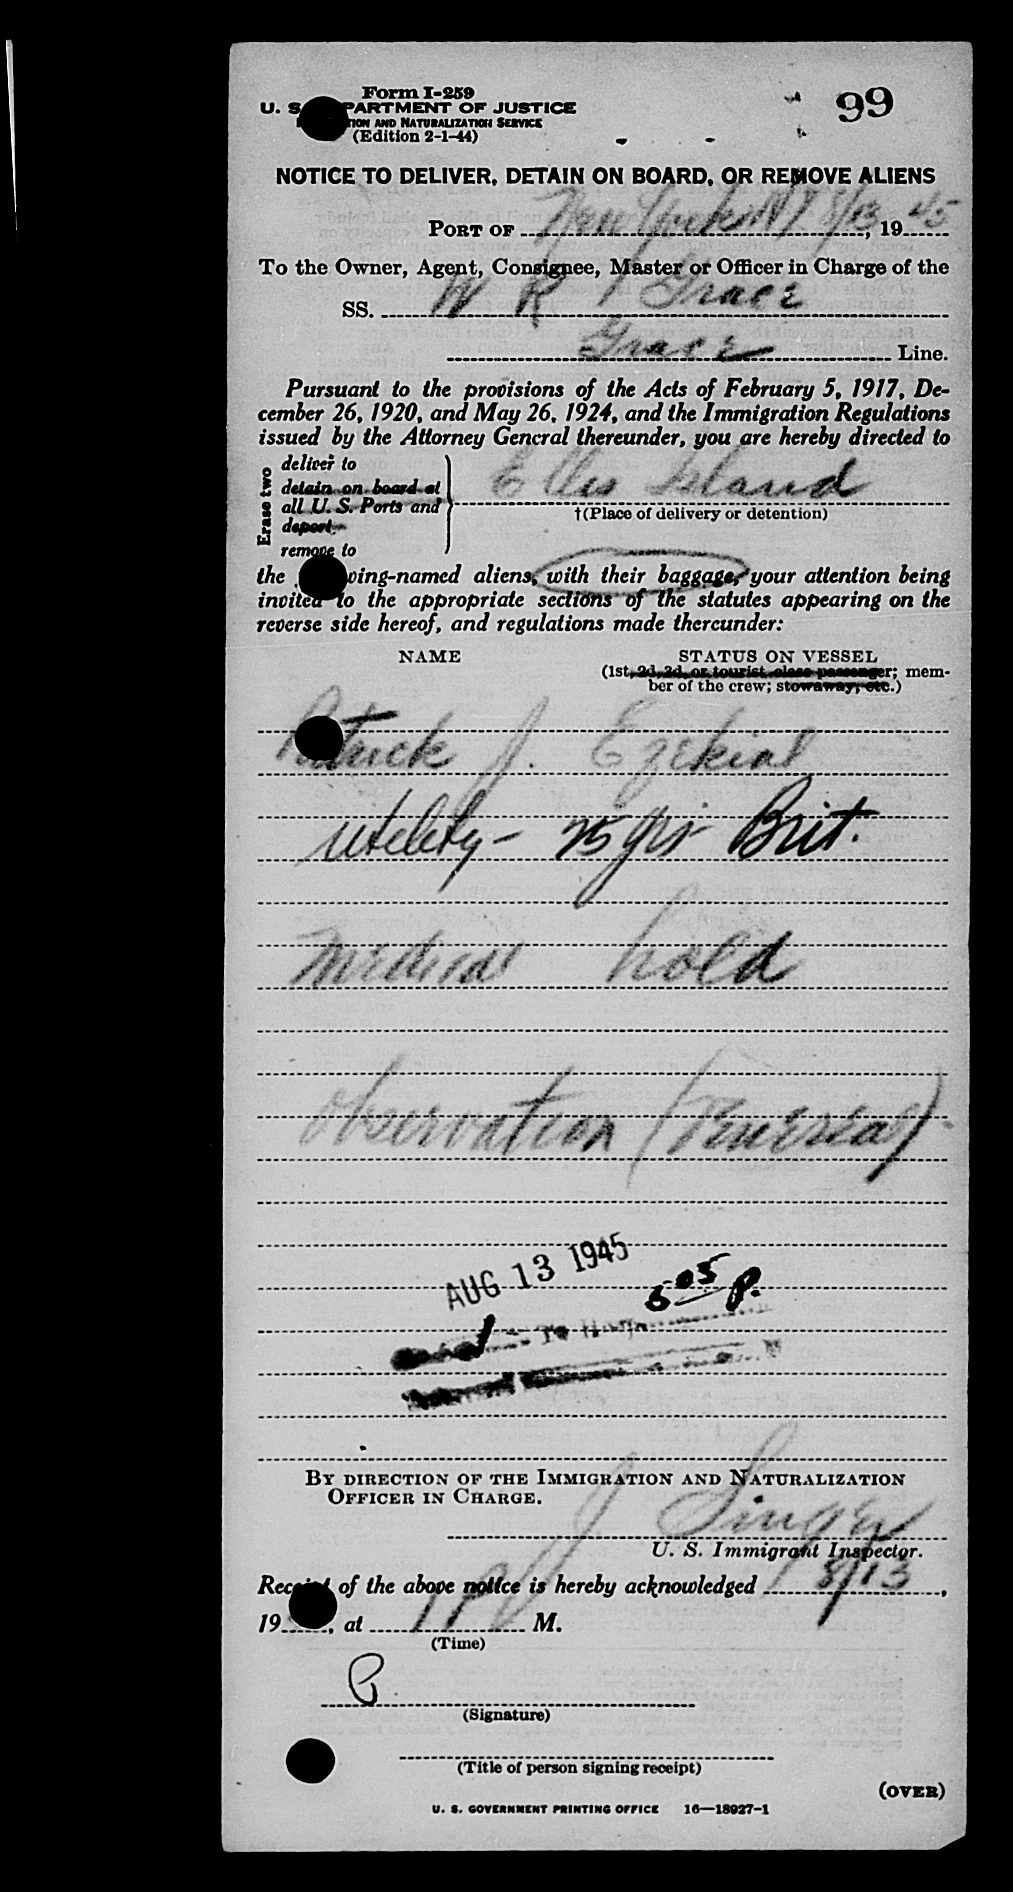 99
Form I-259
U. S. DEPARTMENT OF JUSTICE
AND NATURALIZATION SERVICE
(Edition 2-1-44)
NOTICE TO DELIVER, DETAIN ON BOARD, OR REMOVE ALIENS
PORT OF New York NY 8/13, 19 45
To the Owner, Agent, Consignee, Master or Officer in Charge of the
SS. W R Grace
Grace Line.
Pursuant to the provisions of the Acts of February 5, 1917, De-
cember 26, 1920, and May 26, 1924, and the Immigration Regulations
issued by the Attorney General thereunder, you are hereby directed to
Erase two
deliver to
detain on board at
all U. S. Ports and
deport
remove to
Ellis Island
†(Place of delivery or detention)
the following-named aliens, with their baggage, your attention being
invited to the appropriate sections of the statutes appearing on the
reverse side hereof, and regulations made thereunder:
NAME STATUS ON VESSEL
(1st, 2d, 3d, or tourist class passenger; mem-
ber of the crew; stowaway, etc.)
Patrick J. Ezekial
Utility - 25 yrs Brit.
Medical hold
observation (Venereal)
AUG 13 1945
5 05 P.
BY DIRECTION OF THE IMMIGRATION AND NATURALIZATION
OFFICER IN CHARGE.
J Singer
U. S. Immigrant Inspector.
Receipt of the above notice is hereby acknowledged 8/13,
19, at 1 P M.
(Time)
(Signature)
(Title of person signing receipt)
(OVER)
U. S. GOVERNMENT PRINTING OFFICE 16—18927-1